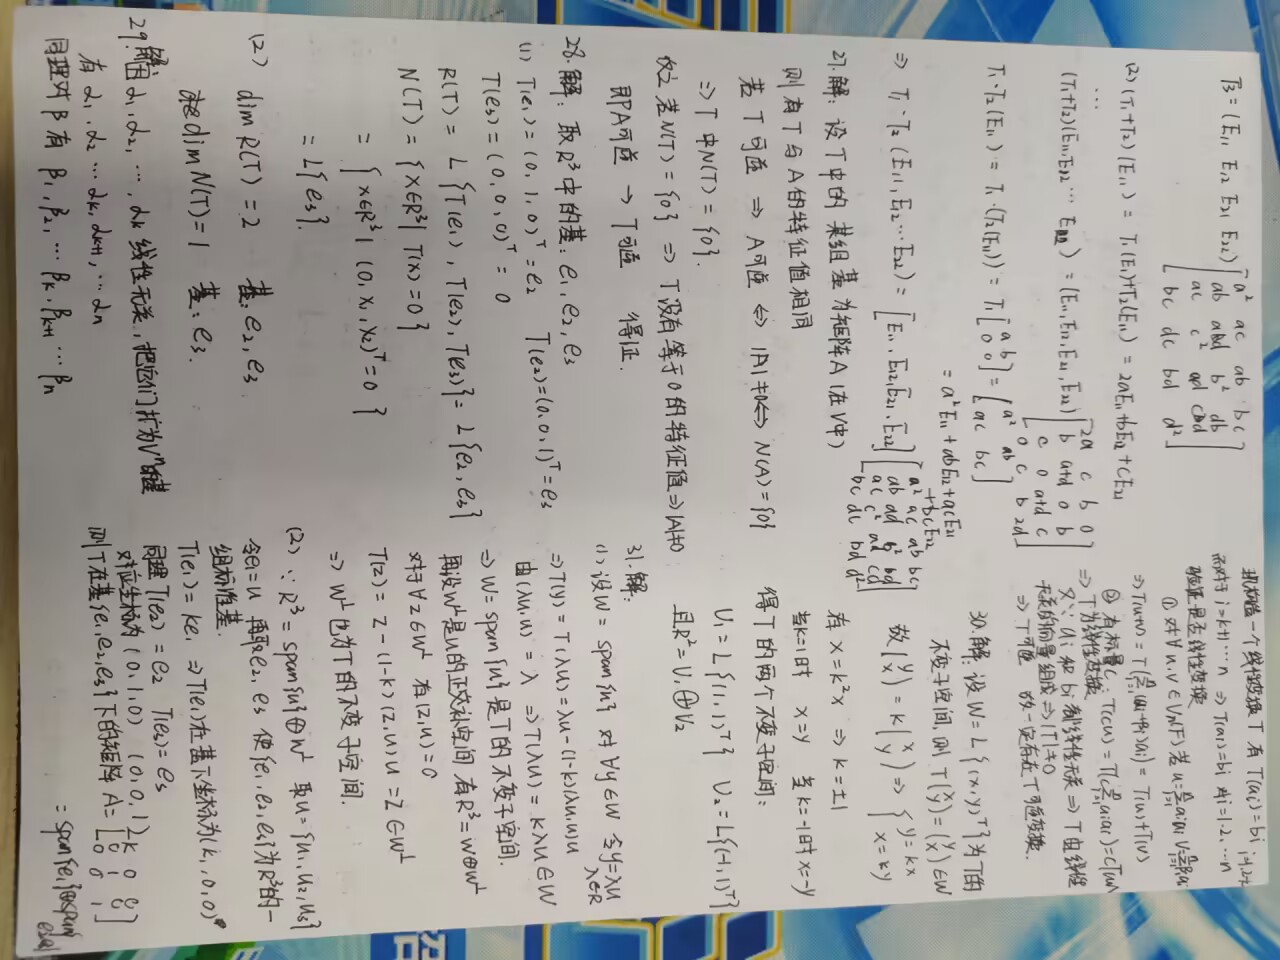 T3 = (E11 E12 E21 E22) [a² ac ab bc
ab ad b² db
ac c² ad cd
bc dc bd d²]
(2) (T1+T2)(E11) = T1(E1)+T2(E11) = 2aE11+bE12+cE21
...
(T1+T2)(E11,E12 ... E22) = (E11,E12,E21,E22) [2a c b 0
b a+d 0 b
c 0 a+d c
0 c b 2d]
T1·T2(E11) = T1·(T2(E11)) = T1 [a b
0 0] = [a² ab
ac bc]
= a²E11+abE12+acE21
+bcE22
⇒ T1·T2 (E11,E12...E22) = [E11,E12,E21,E22] [a² ac ab bc
ab ad b² bd
ac c² ad cd
bc dc bd d²]
27.解: 设T中的某组基为矩阵A(在V中)
则有T与A的特征值相同
若T可逆 ⇒ A可逆 ⇔ |A|≠0 ⇔ N(A)={0}
⇒T中N(T)={0}.
反之若N(T)={0} ⇒ T没有等于0的特征值⇒|A|≠0
即A可逆 → T可逆 得证.
28.解: 取R³中的基: e1, e2, e3
(1) T(e1)=(0,1,0)ᵀ=e2 T(e2)=(0,0,1)ᵀ=e3
T(e3)=(0,0,0)ᵀ=0
R(T)= L{T(e1), T(e2), T(e3)}= L{e2,e3}
N(T)={x∈R³| T(x)=0}
= {x∈R³| (0,x1,x2)ᵀ=0}
= L{e3}.
(2) dim R(T)=2 基: e2, e3
dim N(T)=1 基: e3.
29.解: 由α1,α2,...,αk线性无关,把它们扩为Vⁿ的基
有α1,α2...αk,αk+1,...αn
同理对β有β1,β2,...βk,βk+1...βn
现构造一个线性变换T 有T(ai)=bi i=1.2..k
而对于i=k+1...n ⇒ T(ai)=bi 对i=1.2...n
验证是否线性变换
① 对∀u,v∈Vn(F) 若u=Σaiai v=Σβiai
⇒T(u+v)=T(Σ(ai+βi)ai)=T(u)+T(v)
② 有标量c: T(cu)=T(cΣaiai)=cT(u)
⇒T为线性变换
又∵ai和bi都线性无关⇒T由线性
无关的向量组成⇒|T|≠0
⇒T可逆 故一定存在T可逆变换.
30.解: 设W=L{(x,y)ᵀ}为T的
不变子空间,则T(x
y)=(y
x)∈W
故(y
x)=k(x
y)⇒{y=kx
x=ky
存x=k²x ⇒k=±1
当k=1时 x=y 当k=-1时x=-y
得T的两个不变子空间:
U1=L{(1,1)ᵀ} U2=L{(-1,1)ᵀ}
且R²=U1⊕U2
31.解:
(1)设W=span{u} 对∀y∈W 令y=λu
λ∈R
⇒T(y)=T(λu)=λu-(1-k)(λu,u)u
由(λu,u)=λ ⇒T(λu)=kλu∈W
⇒W=span{u}是T的不变子空间.
再设W⊥是u的正交补空间 有R³=W⊕W⊥
对于∀z∈W⊥ 有(z,u)=0
T(z)=z-(1-k)(z,u)u=z∈W⊥
⇒W⊥也为T的不变子空间.
(2)∵R³=span{u}⊕W⊥ 取u={u1,u2,u3}
令e1=u 再取e2,e3 使{e1,e2,e3}为R³的一
组标准基.
T(e1)=ke1 ⇒T(e1)在基下坐标为(k,0,0)
同理T(e2)=e2 T(e3)=e3
对应坐标为(0,1,0) (0,0,1)
则T在基{e1,e2,e3}下的矩阵A=[k 0 0
0 1 0
0 0 1]
=span{e1}⊕span{e2,e3}